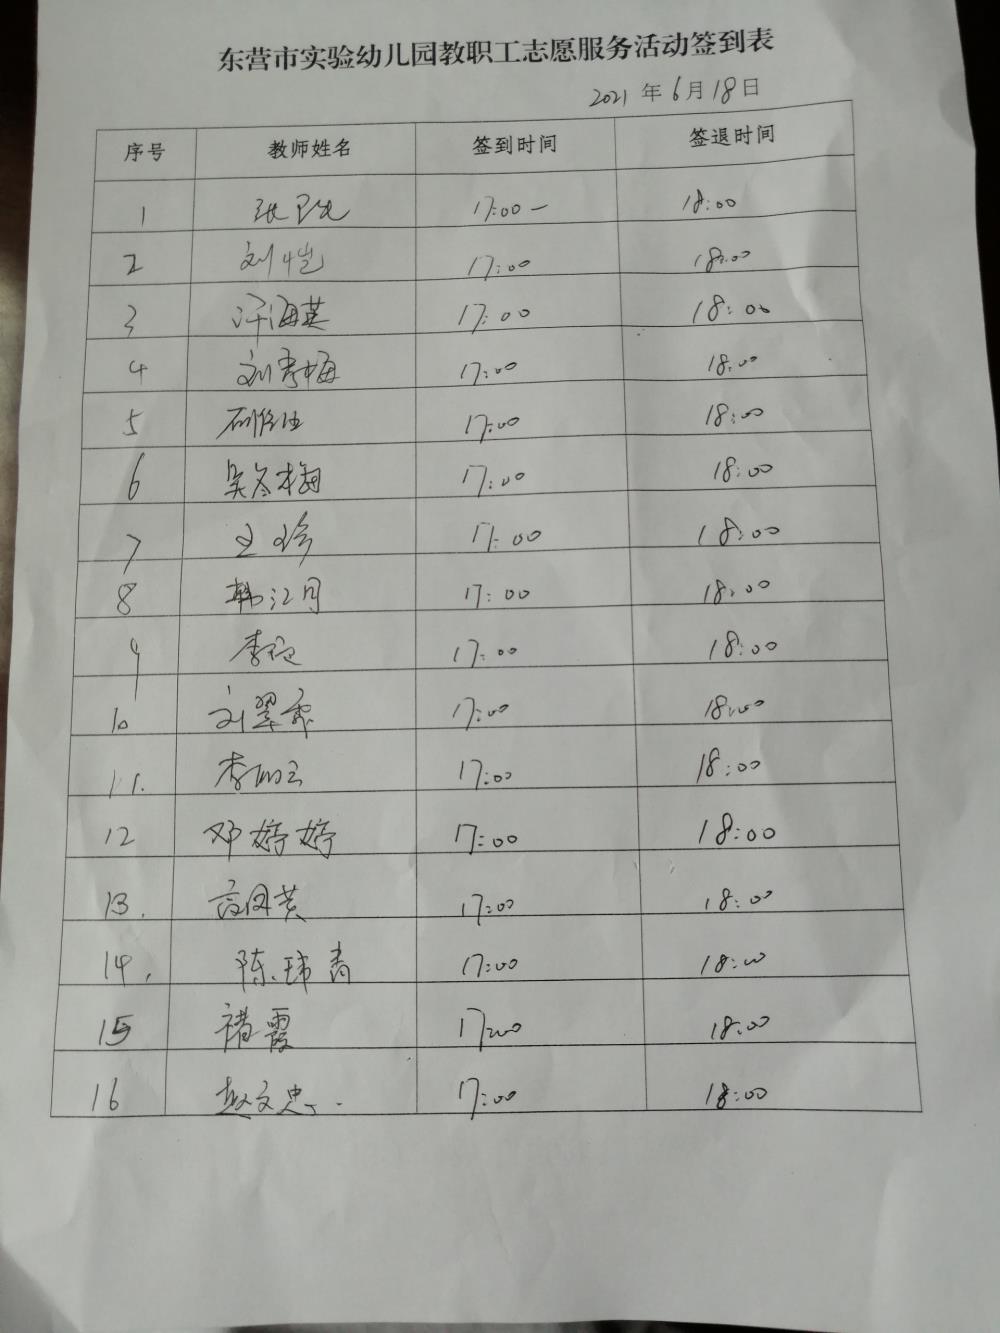 东营市实验幼儿园教职工志愿服务活动签到表
2021 年 6 月 18 日
序号 教师姓名 签到时间 签退时间
1 张 17:00 - 18:00
2 刘恺 17:00 18:00
3 海英 17:00 18:00
4 刘秀梅 17:00 18:00
5 17:00 18:00
6 吴冬梅 17:00 18:00
7 王珍 17:00 18:00
8 韩江月 17:00 18:00
9 李 17:00 18:00
10 刘翠霞 17:00 18:00
11. 李 17:00 18:00
12 邓婷婷 17:00 18:00
13. 高凤英 17:00 18:00
14. 陈玮青 17:00 18:00
15 褚霞 17:00 18:00
16 赵文忠 17:00 18:00